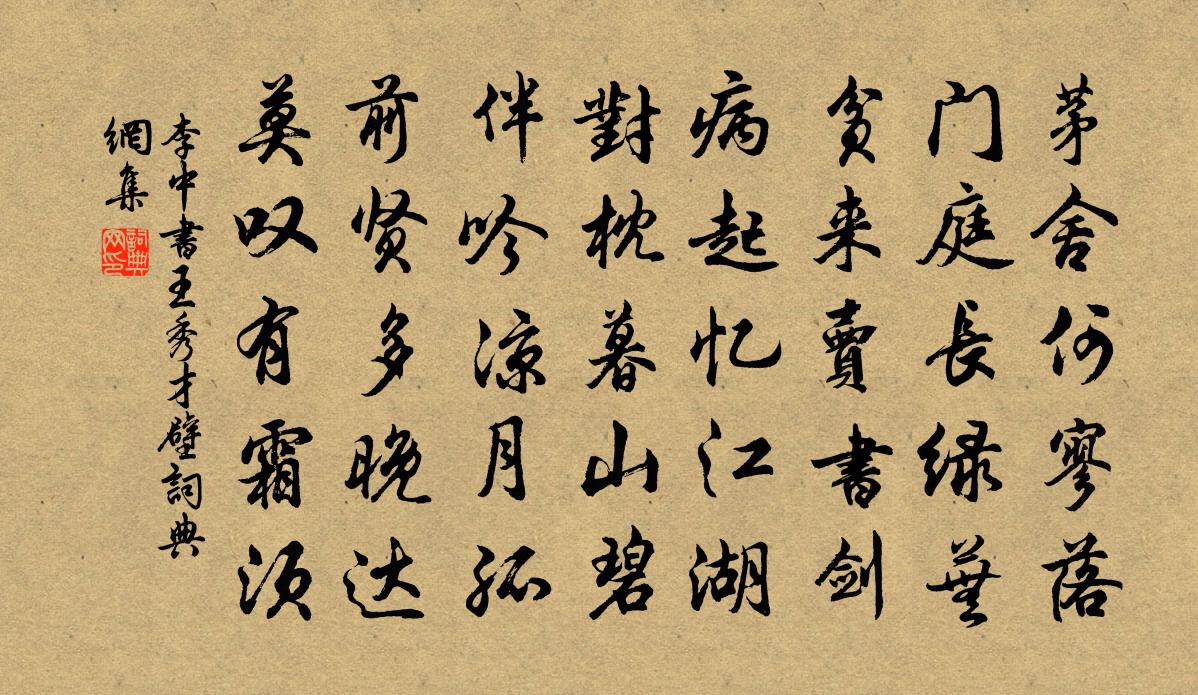 茅舍何寥落
门庭長绿蕪
貧来賣書劍
病起忆江湖
對枕暮山碧
伴吟涼月孤
前贤多晚达
莫叹有霜须
李中書王秀才壁詞典
網集
詞典网印